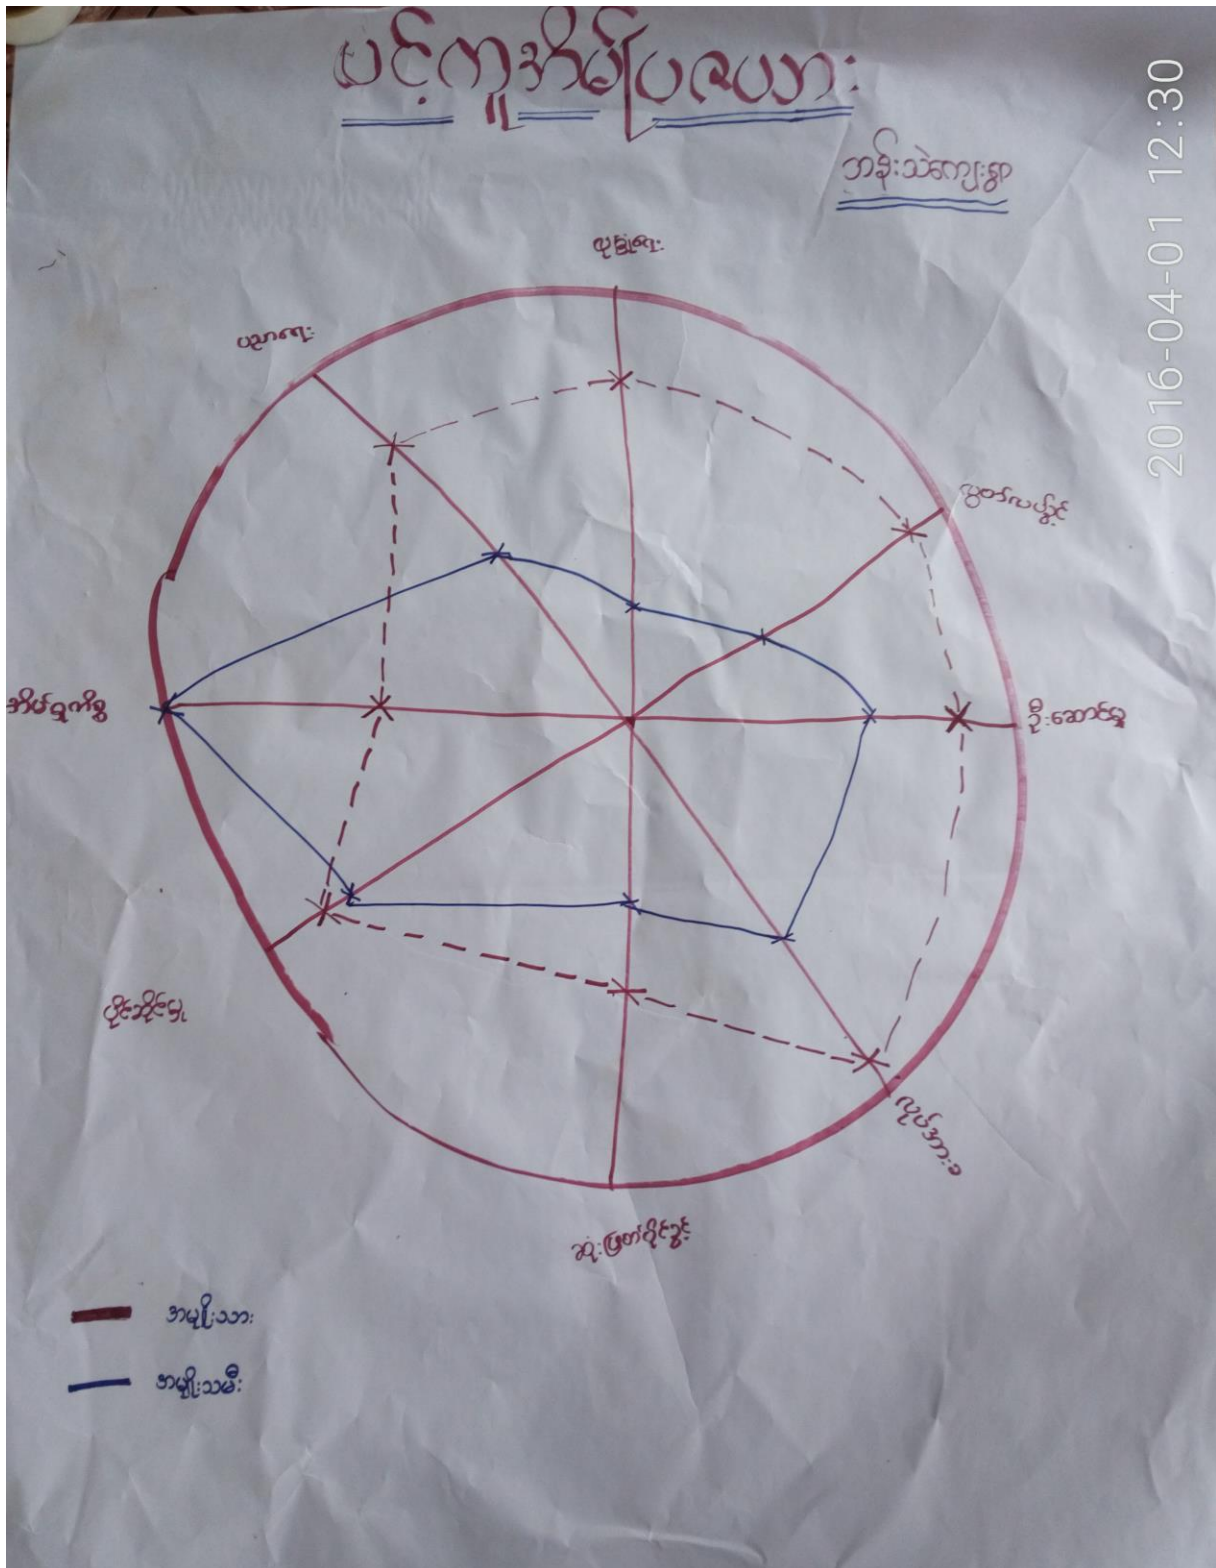 ပင့်ကူအိမ်ပဇယား
ဘန်းသဲကျေးရွာ
2016-04-01 12:30
လူမှုရေး
ပညာရေး
လွတ်လပ်ခွင့်
အိမ်မှုကိစ္စ
ဦးဆောင်မှု
ပိုင်ဆိုင်မှု
လုပ်အားခ
ဆုံးဖြတ်ပိုင်ခွင့်
အမျိုးသား
အမျိုးသမီး